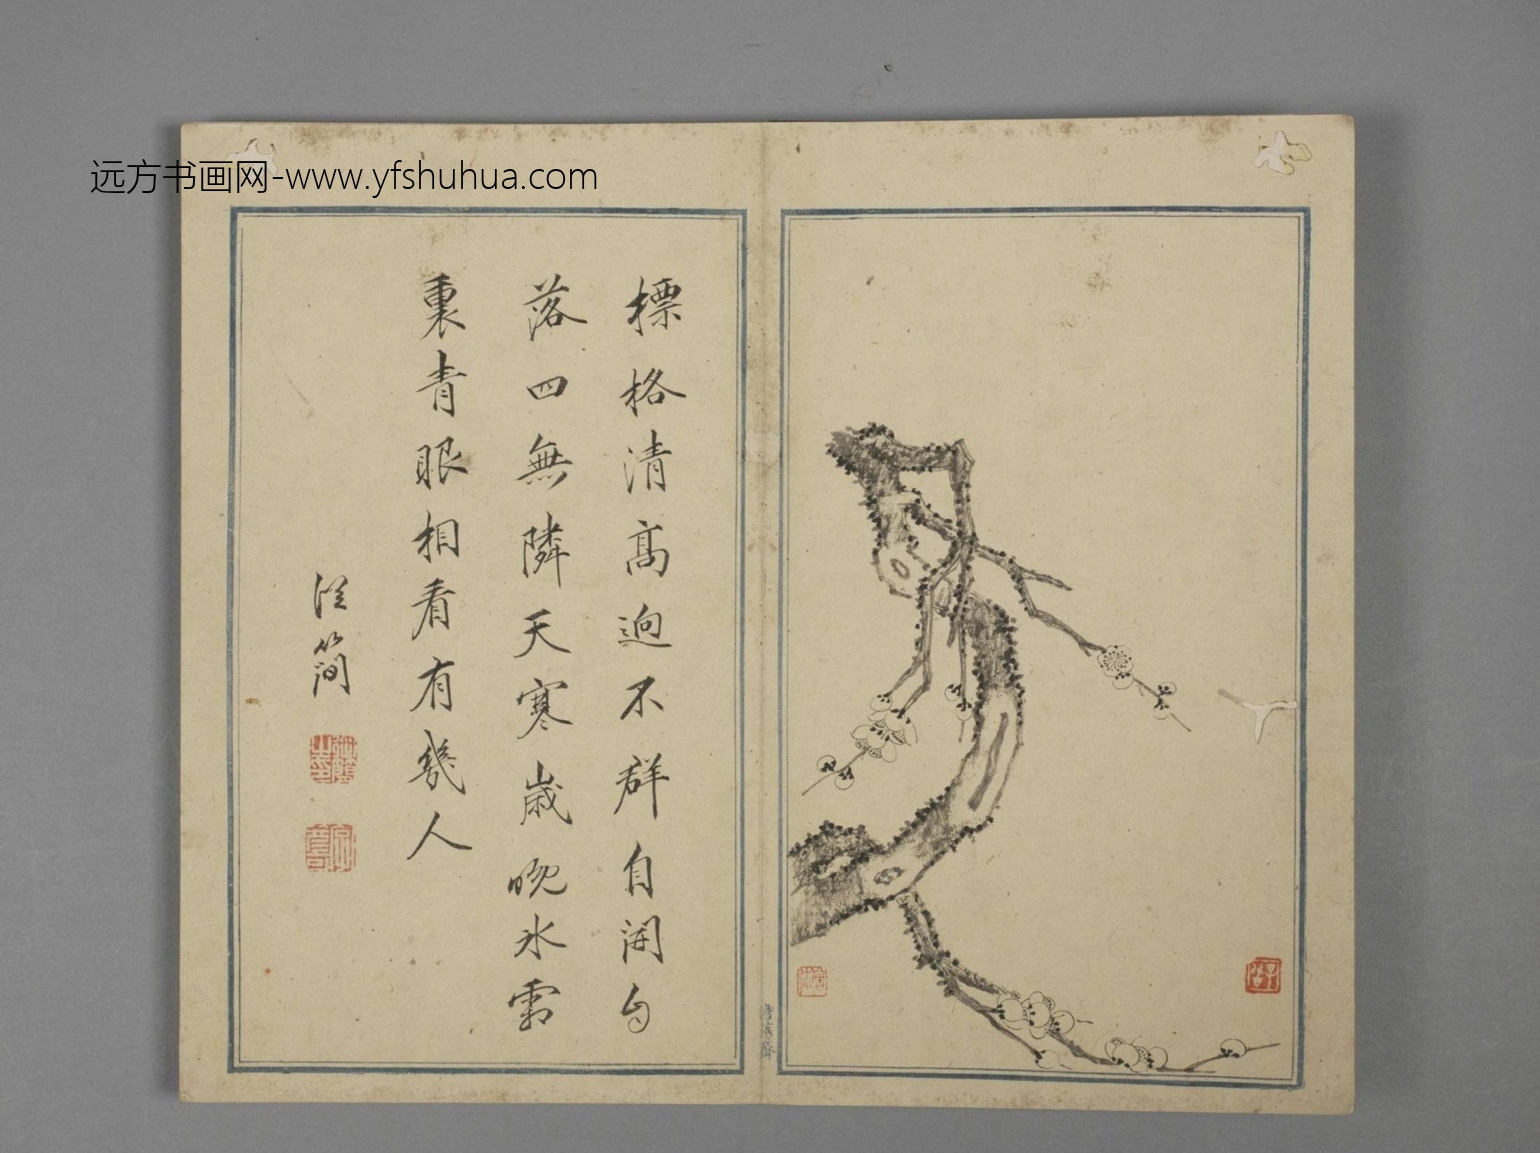 远方书画网-www.yfshuhua.com
標格清高迥不群自開自
落四無隣天寒歲晚氷霜
裏青眼相看有幾人